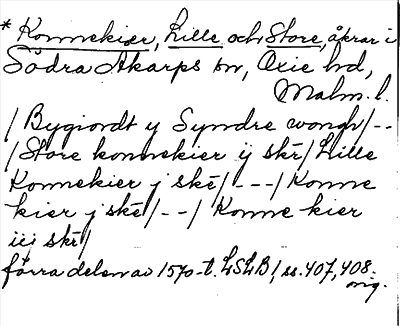 * Konnekier, Lille och Store, åkrar i
Södra Åkarps sn, Oxie hd,
Malm. l.
/ Bygiordt y Syndre wongh /--
/ Store konnekier ij skr / Lille
Konnekier j ske / --- / Konne
kier j ske / -- / Konne kier
iij skr /
förra delen av 1570-t. LSLB 1, ss. 407, 408.
orig.